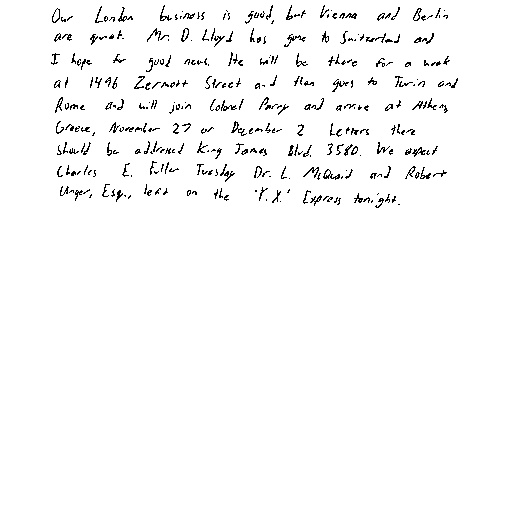 Our London business is good, but Vienna and Berlin
are quiet. Mr. D. Lloyd has gone to Switzerland and
I hope for good news. He will be there for a week
at 1496 Zermott Street and then goes to Turin and
Rome and will join Colonel Parry and arrive at Athens,
Greece, November 27 or December 2. Letters there
should be addressed King James Blvd. 3580. We expect
Charles E. Fuller Tuesday. Dr. L. McQuaid and Robert
Unger, Esq., left on the 'Y.X.' Express tonight.